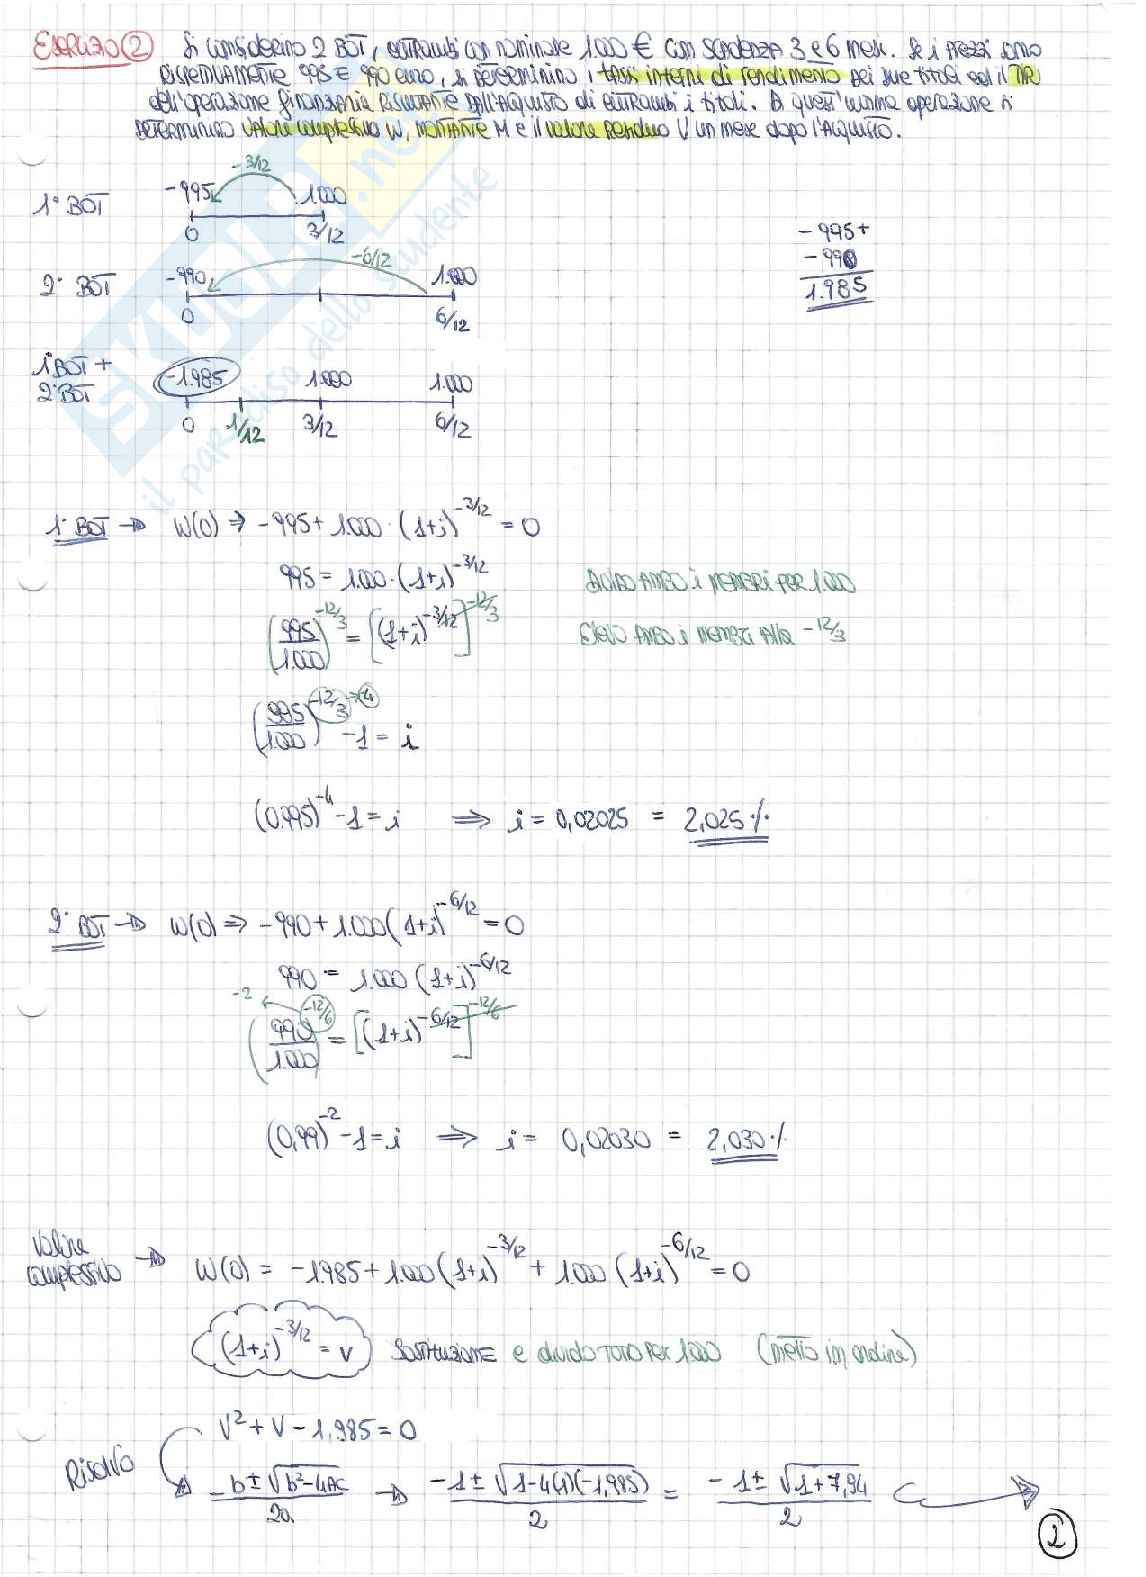 ESERCIZIO 2 Si considerino 2 BOT, entrambi con nominale 1.000 € con scadenza 3 e 6 mesi. Se i prezzi sono
rispettivamente 995 e 990 euro, si determinino i tassi interni di rendimento dei due titoli ed il TIR
dell'operazione finanziaria risultante dall'acquisto di entrambi i titoli. Di quest'ultima operazione si
determinino valore complessivo W, montante M e il valore residuo V un mese dopo l'acquisto.
-3/12
1° BOT -995 1.000
0 3/12
-995+
-990
1.985
-6/12
2° BOT -990 1.000
0 6/12
1° BOT +
2° BOT -1.985 1.000 1.000
0 1/12 3/12 6/12
SKUOLA.net
il paradiso dello studente
1° BOT → W(0) ⇒ -995 + 1.000 · (1+i)^-3/12 = 0
995 = 1.000 · (1+i)^-3/12 Divido ambo i membri per 1.000
(995/1.000)^-12/3 = [(1+i)^-3/12]^-12/3 Elevo ambo i membri alla -12/3
(995/1.000)^-12/3 → -4 -1 = i
(0.995)^-4 -1 = i ⇒ i = 0,02025 = 2,025%
2° BOT → W(0) ⇒ -990 + 1.000 (1+i)^-6/12 = 0
990 = 1.000 (1+i)^-6/12
-2 ← (990/1.000)^-12/6 = [(1+i)^-6/12]^-12/6
(0,99)^-2 -1 = i ⇒ i = 0,02030 = 2,030%
Valore
complessivo → W(0) = -1985 + 1.000 (1+i)^-3/12 + 1.000 (1+i)^-6/12 = 0
(1+i)^-3/12 = v Sostituzione e divido tutto per 1.000 (metto in ordine)
V² + V - 1,985 = 0
Risolvo -b ± √b²-4ac / 2a → -1 ± √1-4(1)(-1,985) / 2 = -1 ± √1+7,94 / 2
2